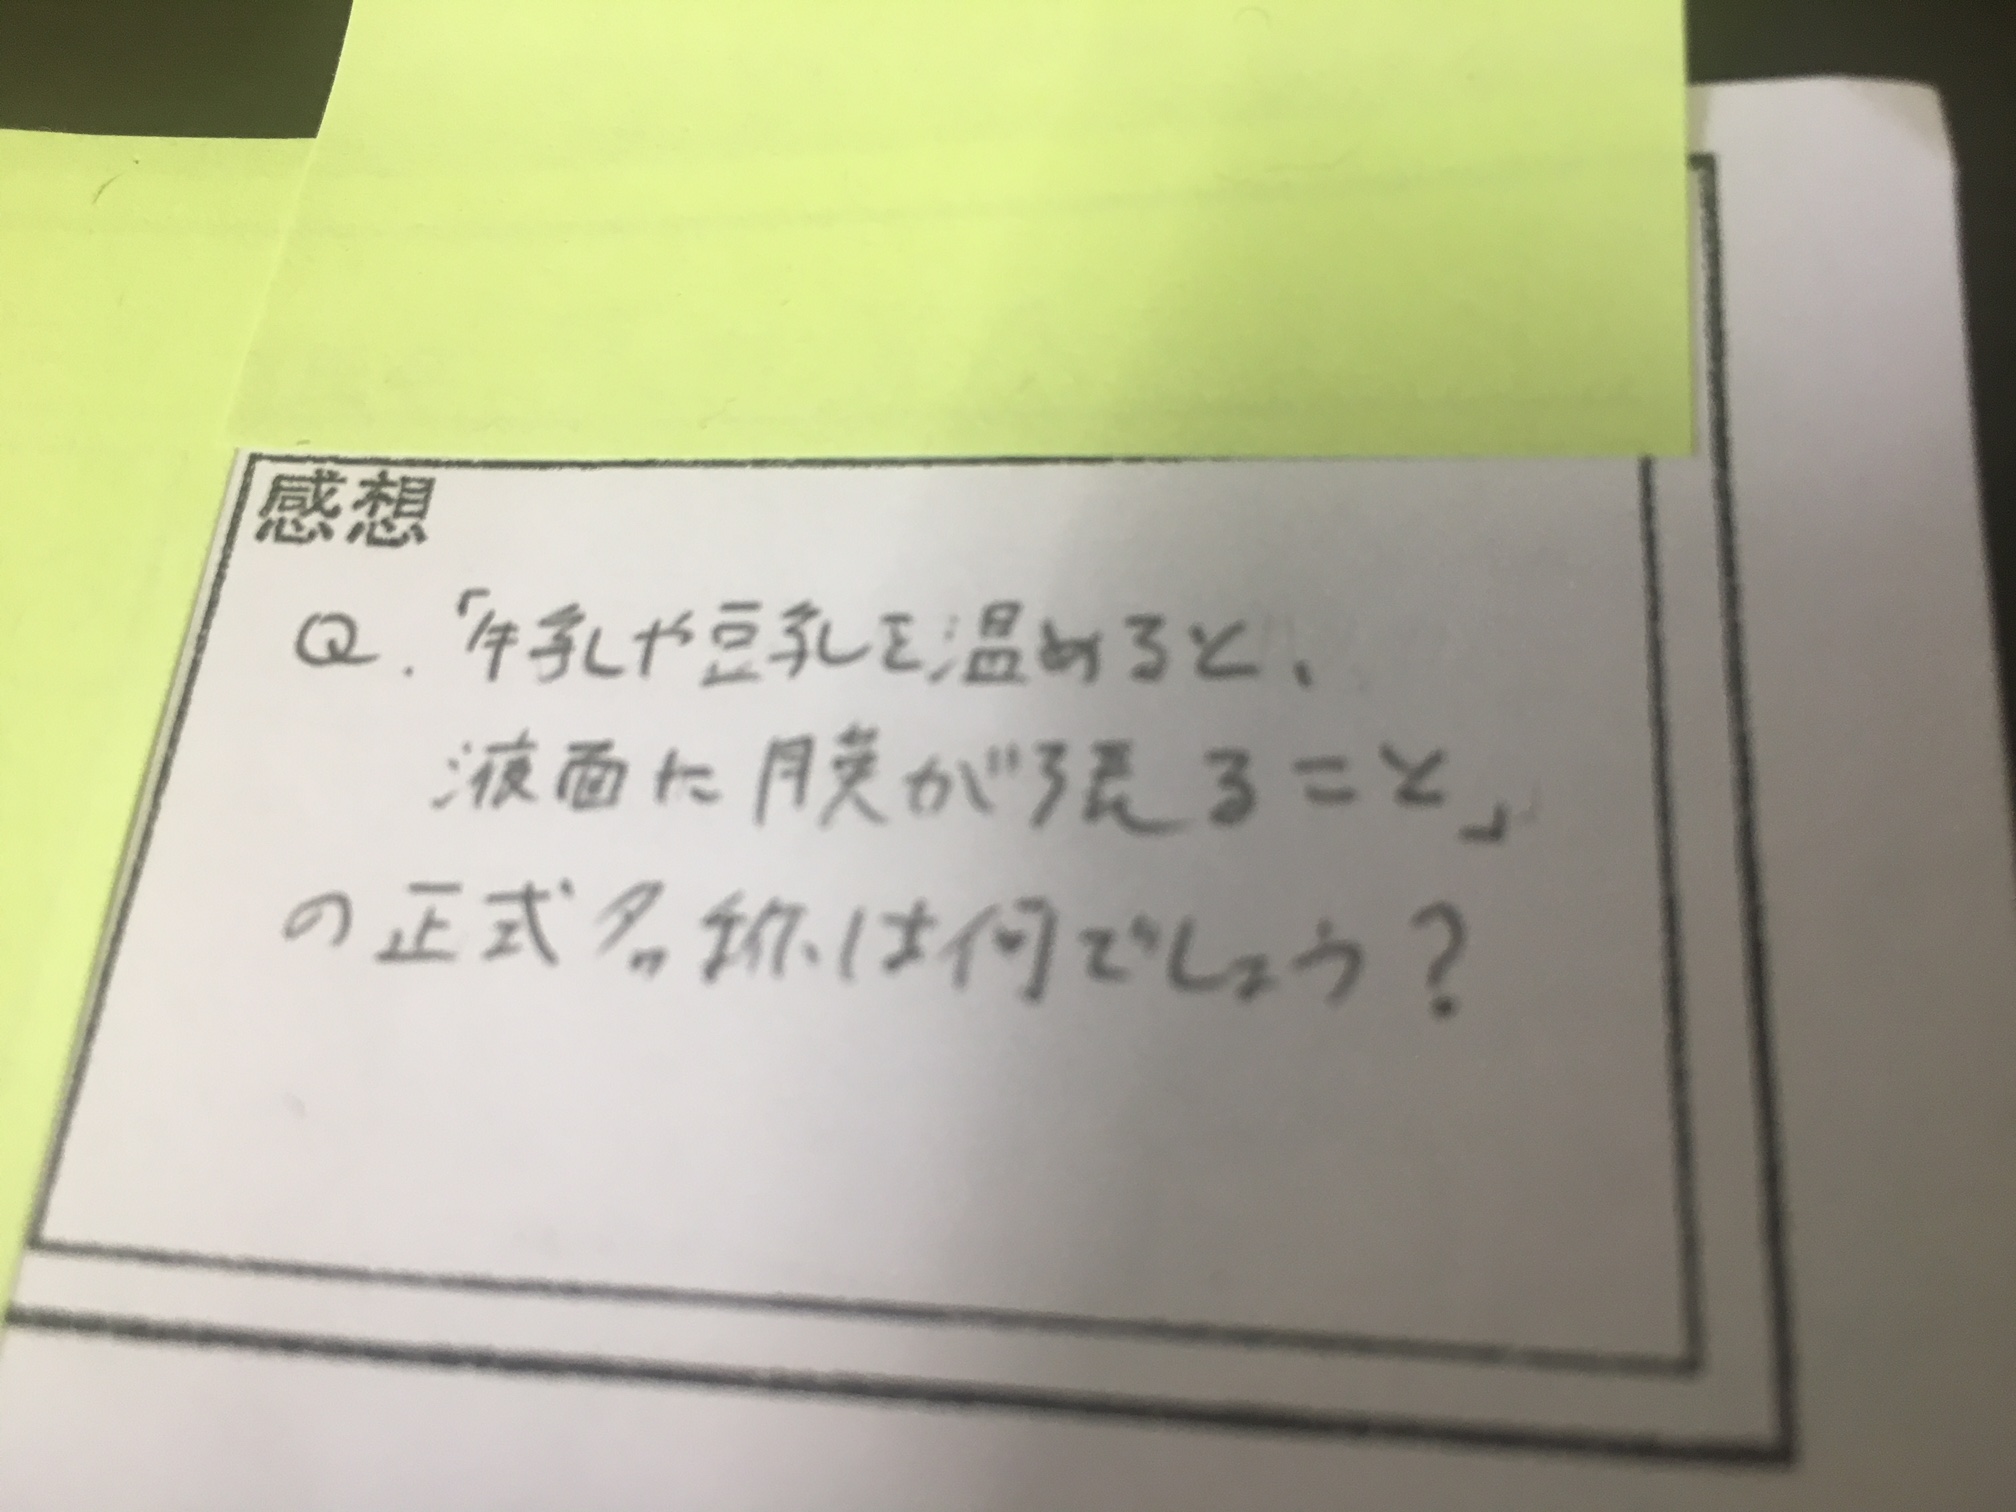 感想
Q.「牛乳や豆乳を温めると、
液面に膜が張ること」
の正式名称は何でしょう?